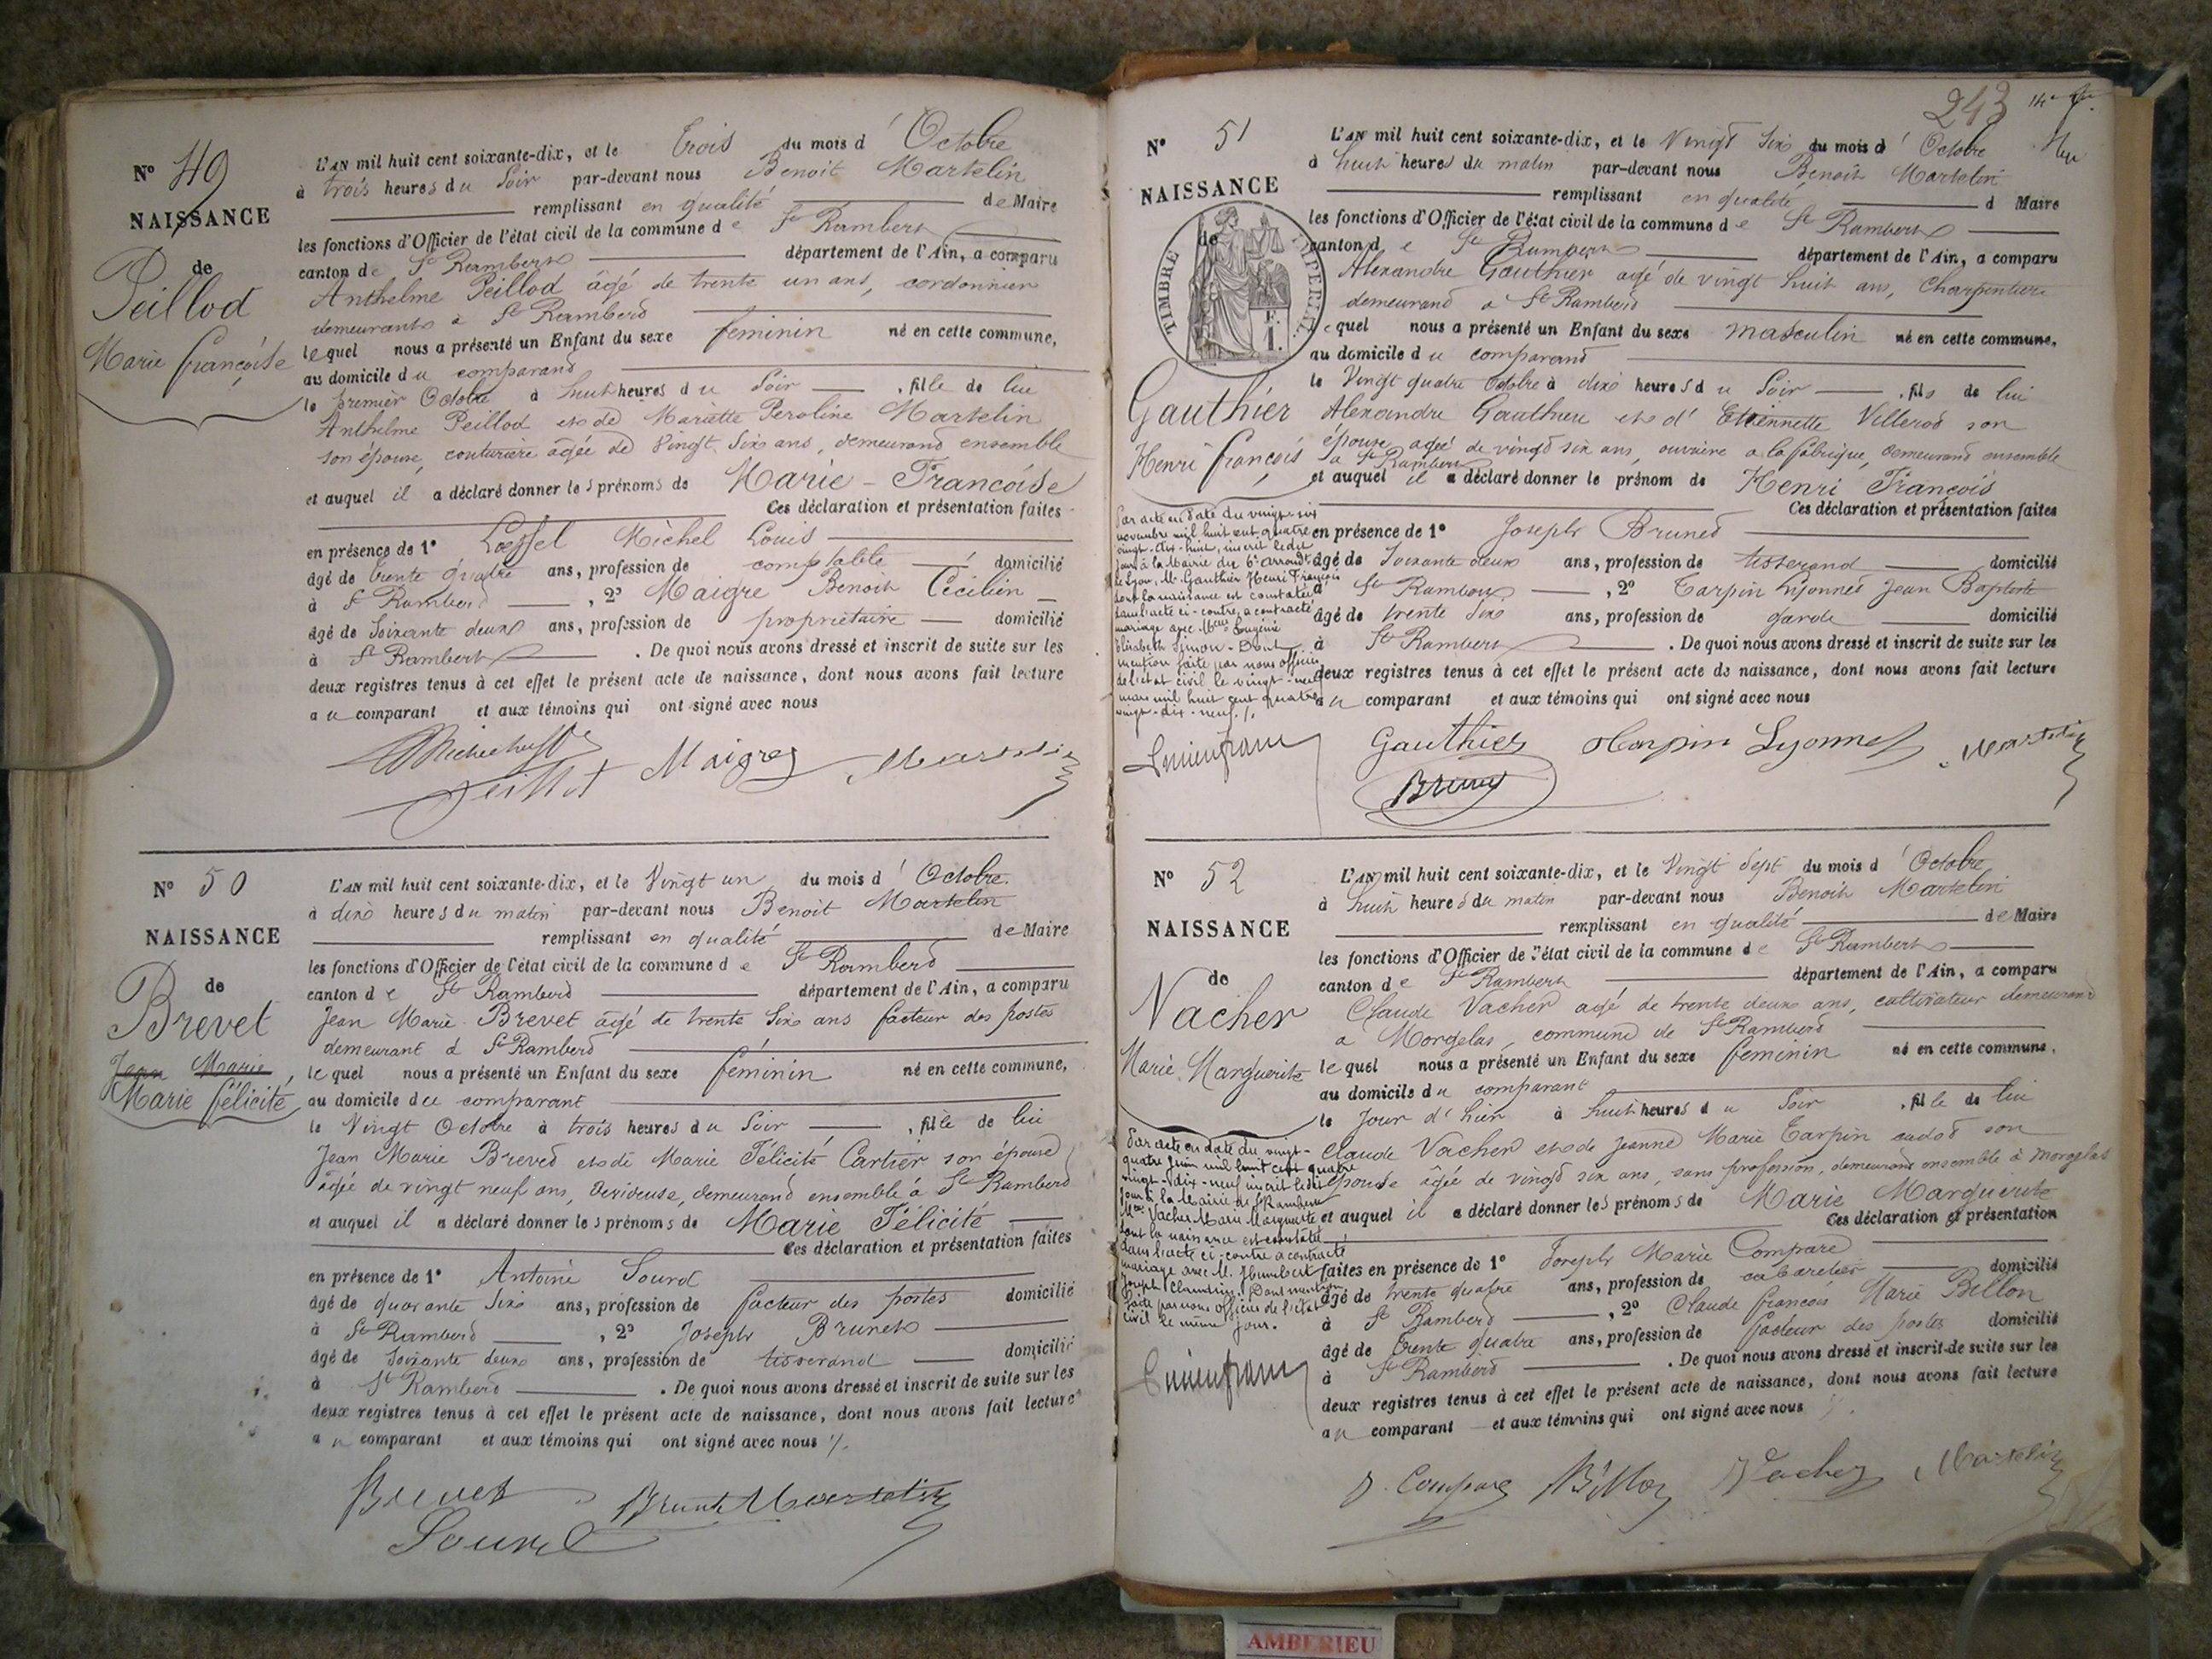 N° 49
NAISSANCE
de
Peillod
Marie françoise
L'AN mil huit cent soixante-dix, et le trois du mois d'Octobre
à trois heures du Soir par-devant nous Benoit Martelin
remplissant en qualité de Maire
les fonctions d'Officier de l'état civil de la commune de St Rambert
canton de St Rambert département de l'Ain, a comparu
Anthelme Peillod âgé de trente un ans, cordonnier
demeurant à St Rambert
lequel nous a présenté un Enfant du sexe féminin né en cette commune,
au domicile du comparant
le premier Octobre à huit heures du Soir , fille de lui
Anthelme Peillod et de Mariette Peroline Martelin
son épouse, couturière âgée de vingt six ans, demeurant ensemble
et auquel il a déclaré donner les prénoms de Marie - Françoise
Ces déclaration et présentation faites
en présence de 1° Loeffel Michel Louis
âgé de trente quatre ans, profession de comptable domicilié
à St Rambert , 2° Maigre Benoit Cécilien
âgé de Soixante deux ans, profession de propriétaire domicilié
à St Rambert . De quoi nous avons dressé et inscrit de suite sur les
deux registres tenus à cet effet le présent acte de naissance, dont nous avons fait lecture
au comparant et aux témoins qui ont signé avec nous
Peillot Maigre Martelin
N° 50
NAISSANCE
de
Brevet
Jean Marie,
Marie félicité
L'AN mil huit cent soixante-dix, et le Vingt un du mois d'Octobre
à dix heures du matin par-devant nous Benoit Martelin
remplissant en qualité de Maire
les fonctions d'Officier de l'état civil de la commune de St Rambert
canton de St Rambert département de l'Ain, a comparu
Jean Marie Brevet âgé de trente Six ans facteur des postes
demeurant à St Rambert
lequel nous a présenté un Enfant du sexe féminin né en cette commune,
au domicile du comparant
le Vingt Octobre à trois heures du Soir , fille de lui
Jean Marie Brevet et de Marie Félicité Cartier son épouse
âgée de vingt neuf ans, devideuse, demeurant ensemble à St Rambert
et auquel il a déclaré donner les prénoms de Marie Félicité
Ces déclaration et présentation faites
en présence de 1° Antoine Sourd
âgé de quarante Six ans, profession de facteur des postes domicilié
à St Rambert , 2° Joseph Brunet
âgé de Soixante deux ans, profession de tisserand domicilié
à St Rambert . De quoi nous avons dressé et inscrit de suite sur les
deux registres tenus à cet effet le présent acte de naissance, dont nous avons fait lecture
au comparant et aux témoins qui ont signé avec nous
Brevet Brunet Martelin
Sourd
243
N° 51
NAISSANCE
de
TIMBRE IMPÉRIAL
Gauthier
Henri françois
L'AN mil huit cent soixante-dix, et le Vingt Six du mois d'Octobre
à huit heures du matin par-devant nous Benoit Martelin
remplissant en qualité d Maire
les fonctions d'Officier de l'état civil de la commune de St Rambert
canton de St Rambert département de l'Ain, a comparu
Alexandre Gauthier âgé de vingt huit ans, Charpentier
demeurant à St Rambert
lequel nous a présenté un Enfant du sexe masculin né en cette commune,
au domicile du comparant
le Vingt quatre Octobre à dix heures du Soir , fils de lui
Alexandre Gauthier et d'Etiennette Villerod son
épouse âgée de vingt six ans, ouvrière à la fabrique, demeurant ensemble
à St Rambert
et auquel il a déclaré donner le prénom de Henri François
Ces déclaration et présentation faites
en présence de 1° Joseph Brunet
âgé de Soixante deux ans, profession de tisserand domicilié
à St Rambert , 2° Tarpin Lyonnet Jean Baptiste
âgé de trente Six ans, profession de garde domicilié
à St Rambert . De quoi nous avons dressé et inscrit de suite sur les
deux registres tenus à cet effet le présent acte de naissance, dont nous avons fait lecture
au comparant et aux témoins qui ont signé avec nous
Par acte en date du vingt-six
novembre mil huit cent quatre
vingt-dix-huit, inscrit ledit
jour à la Mairie du 6e arrondt
de Lyon, M. Gauthier Henri François
dont la naissance est constatée
dans l'acte ci-contre, a contracté
mariage avec Melle Eugénie
Elisabeth Simon - Dont
mention faite par nous officier
de l'état civil le vingt-neuf
mars mil huit cent quatre
vingt-dix-neuf./.
Gauthier Tarpin Lyonnet Martelin
Brunet
N° 52
NAISSANCE
de
Vacher
Marie Marguerite
L'AN mil huit cent soixante-dix, et le Vingt Sept du mois d'Octobre
à huit heures du matin par-devant nous Benoit Martelin
remplissant en qualité de Maire
les fonctions d'Officier de l'état civil de la commune de St Rambert
canton de St Rambert département de l'Ain, a comparu
Claude Vacher âgé de trente deux ans, cultivateur demeurant
à Morgelas, commune de St Rambert
lequel nous a présenté un Enfant du sexe féminin né en cette commune,
au domicile du comparant
le Jour d'hier à huit heures du Soir , fille de lui
Claude Vacher et de Jeanne Marie Tarpin son
épouse âgée de vingt six ans, sans profession, demeurant ensemble à Morgelas
et auquel il a déclaré donner les prénoms de Marie Marguerite
Ces déclaration et présentation
faites en présence de 1° Joseph Marie Compare
âgé de trente quatre ans, profession de cabaretier domicilié
à St Rambert , 2° Claude françois Marie Billon
âgé de trente quatre ans, profession de facteur des postes domicilié
à St Rambert . De quoi nous avons dressé et inscrit de suite sur les
deux registres tenus à cet effet le présent acte de naissance, dont nous avons fait lecture
au comparant et aux témoins qui ont signé avec nous
Par acte en date du vingt-
quatre Juin mil huit cent quatre
vingt-dix-neuf inscrit ledit
jour à la Mairie de St Rambert
Melle Vacher Marie Marguerite
dont la naissance est constatée
dans l'acte ci-contre a contracté
mariage avec M. Humbert
Joseph Claudius. Dont mention
faite par nous officier de l'état
civil le même jour.
J. Compare Billon Vacher Martelin
AMBERIEU